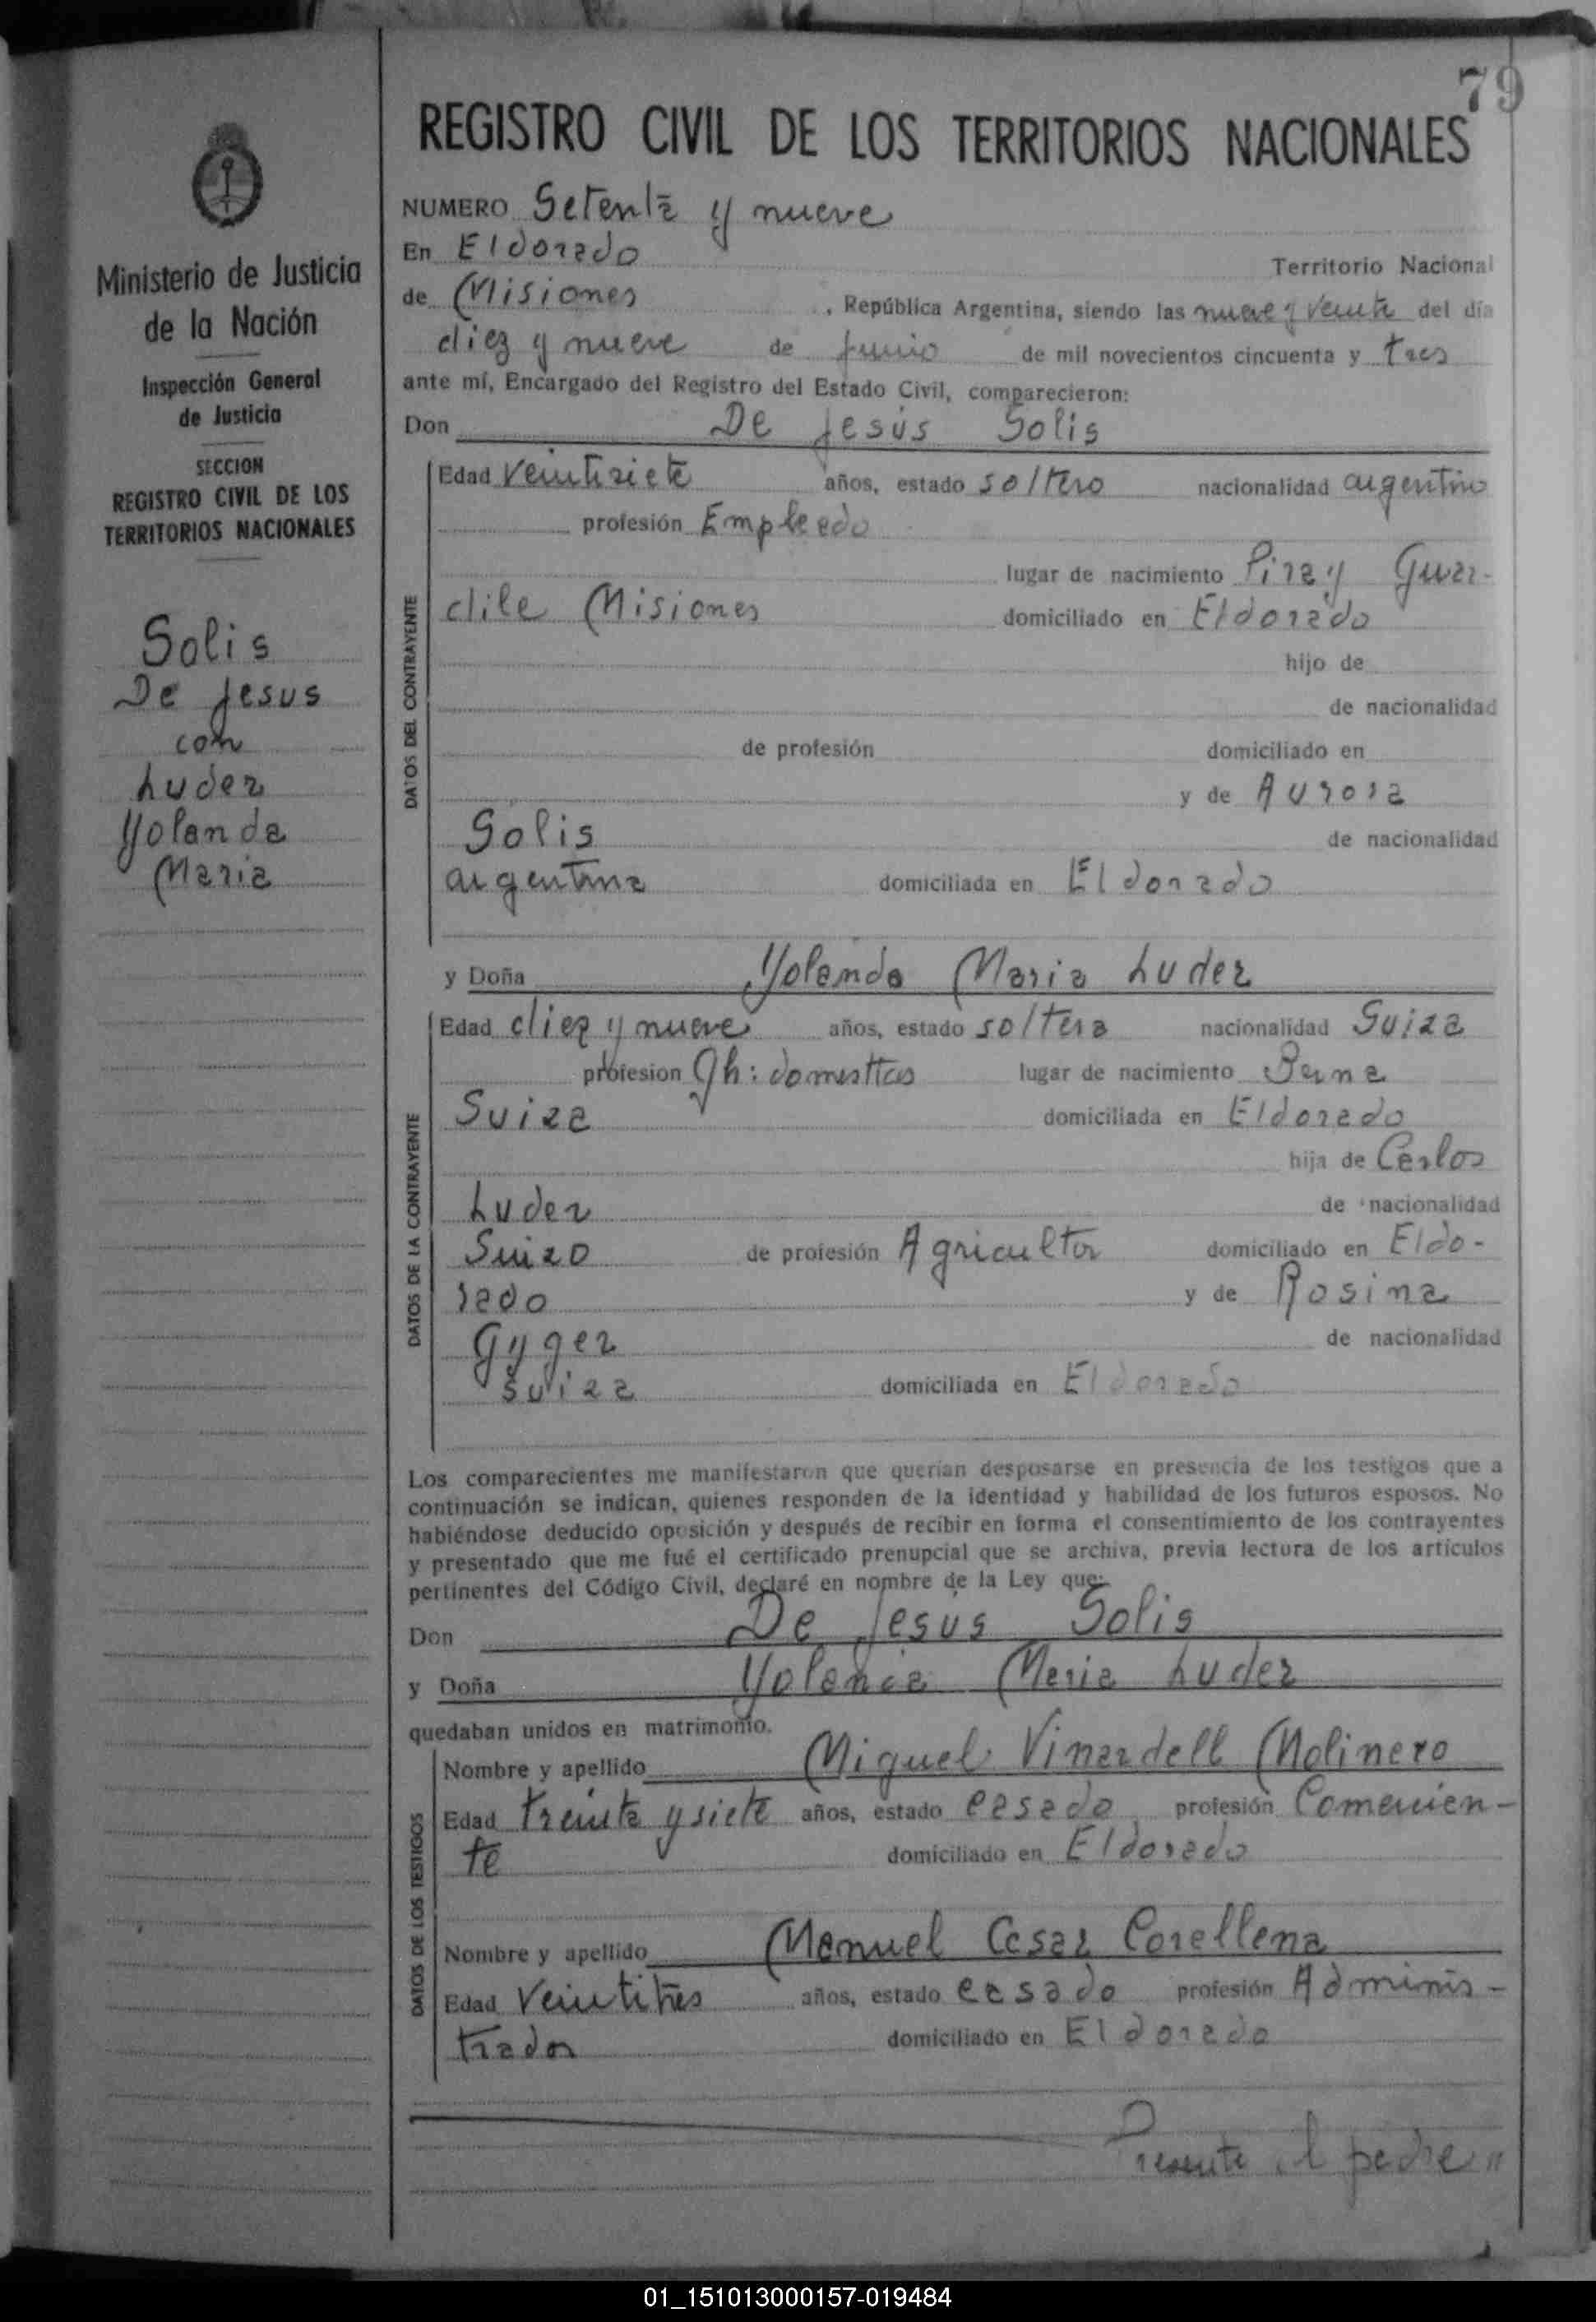 79
REGISTRO CIVIL DE LOS TERRITORIOS NACIONALES
Ministerio de Justicia
de la Nación
Inspección General
de Justicia
SECCION
REGISTRO CIVIL DE LOS
TERRITORIOS NACIONALES
Solis
De Jesus
con
Luder
Yolanda
Maria
NUMERO Setenta y nueve
En Eldorado Territorio Nacional
de Misiones , República Argentina, siendo las nueve y veinte del día
diez y nueve de Junio de mil novecientos cincuenta y tres
ante mí, Encargado del Registro del Estado Civil, comparecieron:
Don De Jesús Solis
DATOS DEL CONTRAYENTE
Edad veintisiete años, estado soltero nacionalidad argentino
profesión Empleado
lugar de nacimiento Piray Guar-
dile Misiones domiciliado en Eldorado
hijo de
de nacionalidad
de profesión domiciliado en
y de Aurora
Solis de nacionalidad
argentina domiciliada en Eldorado
y Doña Yolanda Maria Luder
DATOS DE LA CONTRAYENTE
Edad diez y nueve años, estado soltera nacionalidad Suiza
profesion Qh: domesticos lugar de nacimiento Berna
Suiza domiciliada en Eldorado
hija de Carlos
Luder de nacionalidad
Suizo de profesión Agricultor domiciliado en Eldo-
rado y de Rosina
Gyger de nacionalidad
suiza domiciliada en Eldorado
Los comparecientes me manifestaron que querían desposarse en presencia de los testigos que a
continuación se indican, quienes responden de la identidad y habilidad de los futuros esposos. No
habiéndose deducido oposición y después de recibir en forma el consentimiento de los contrayentes
y presentado que me fué el certificado prenupcial que se archiva, previa lectura de los artículos
pertinentes del Código Civil, declaré en nombre de la Ley que:
Don De Jesus Solis
y Doña Yolanda Maria Luder
quedaban unidos en matrimonio.
DATOS DE LOS TESTIGOS
Nombre y apellido Miguel Vinardell Molinero
Edad treinta y siete años, estado casado profesión Comercian-
te domiciliado en Eldorado
Nombre y apellido Manuel Cesar Corellena
Edad veintitrés años, estado casado profesión Adminis-
trador domiciliado en Eldorado
Presente el padre
01_151013000157-019484